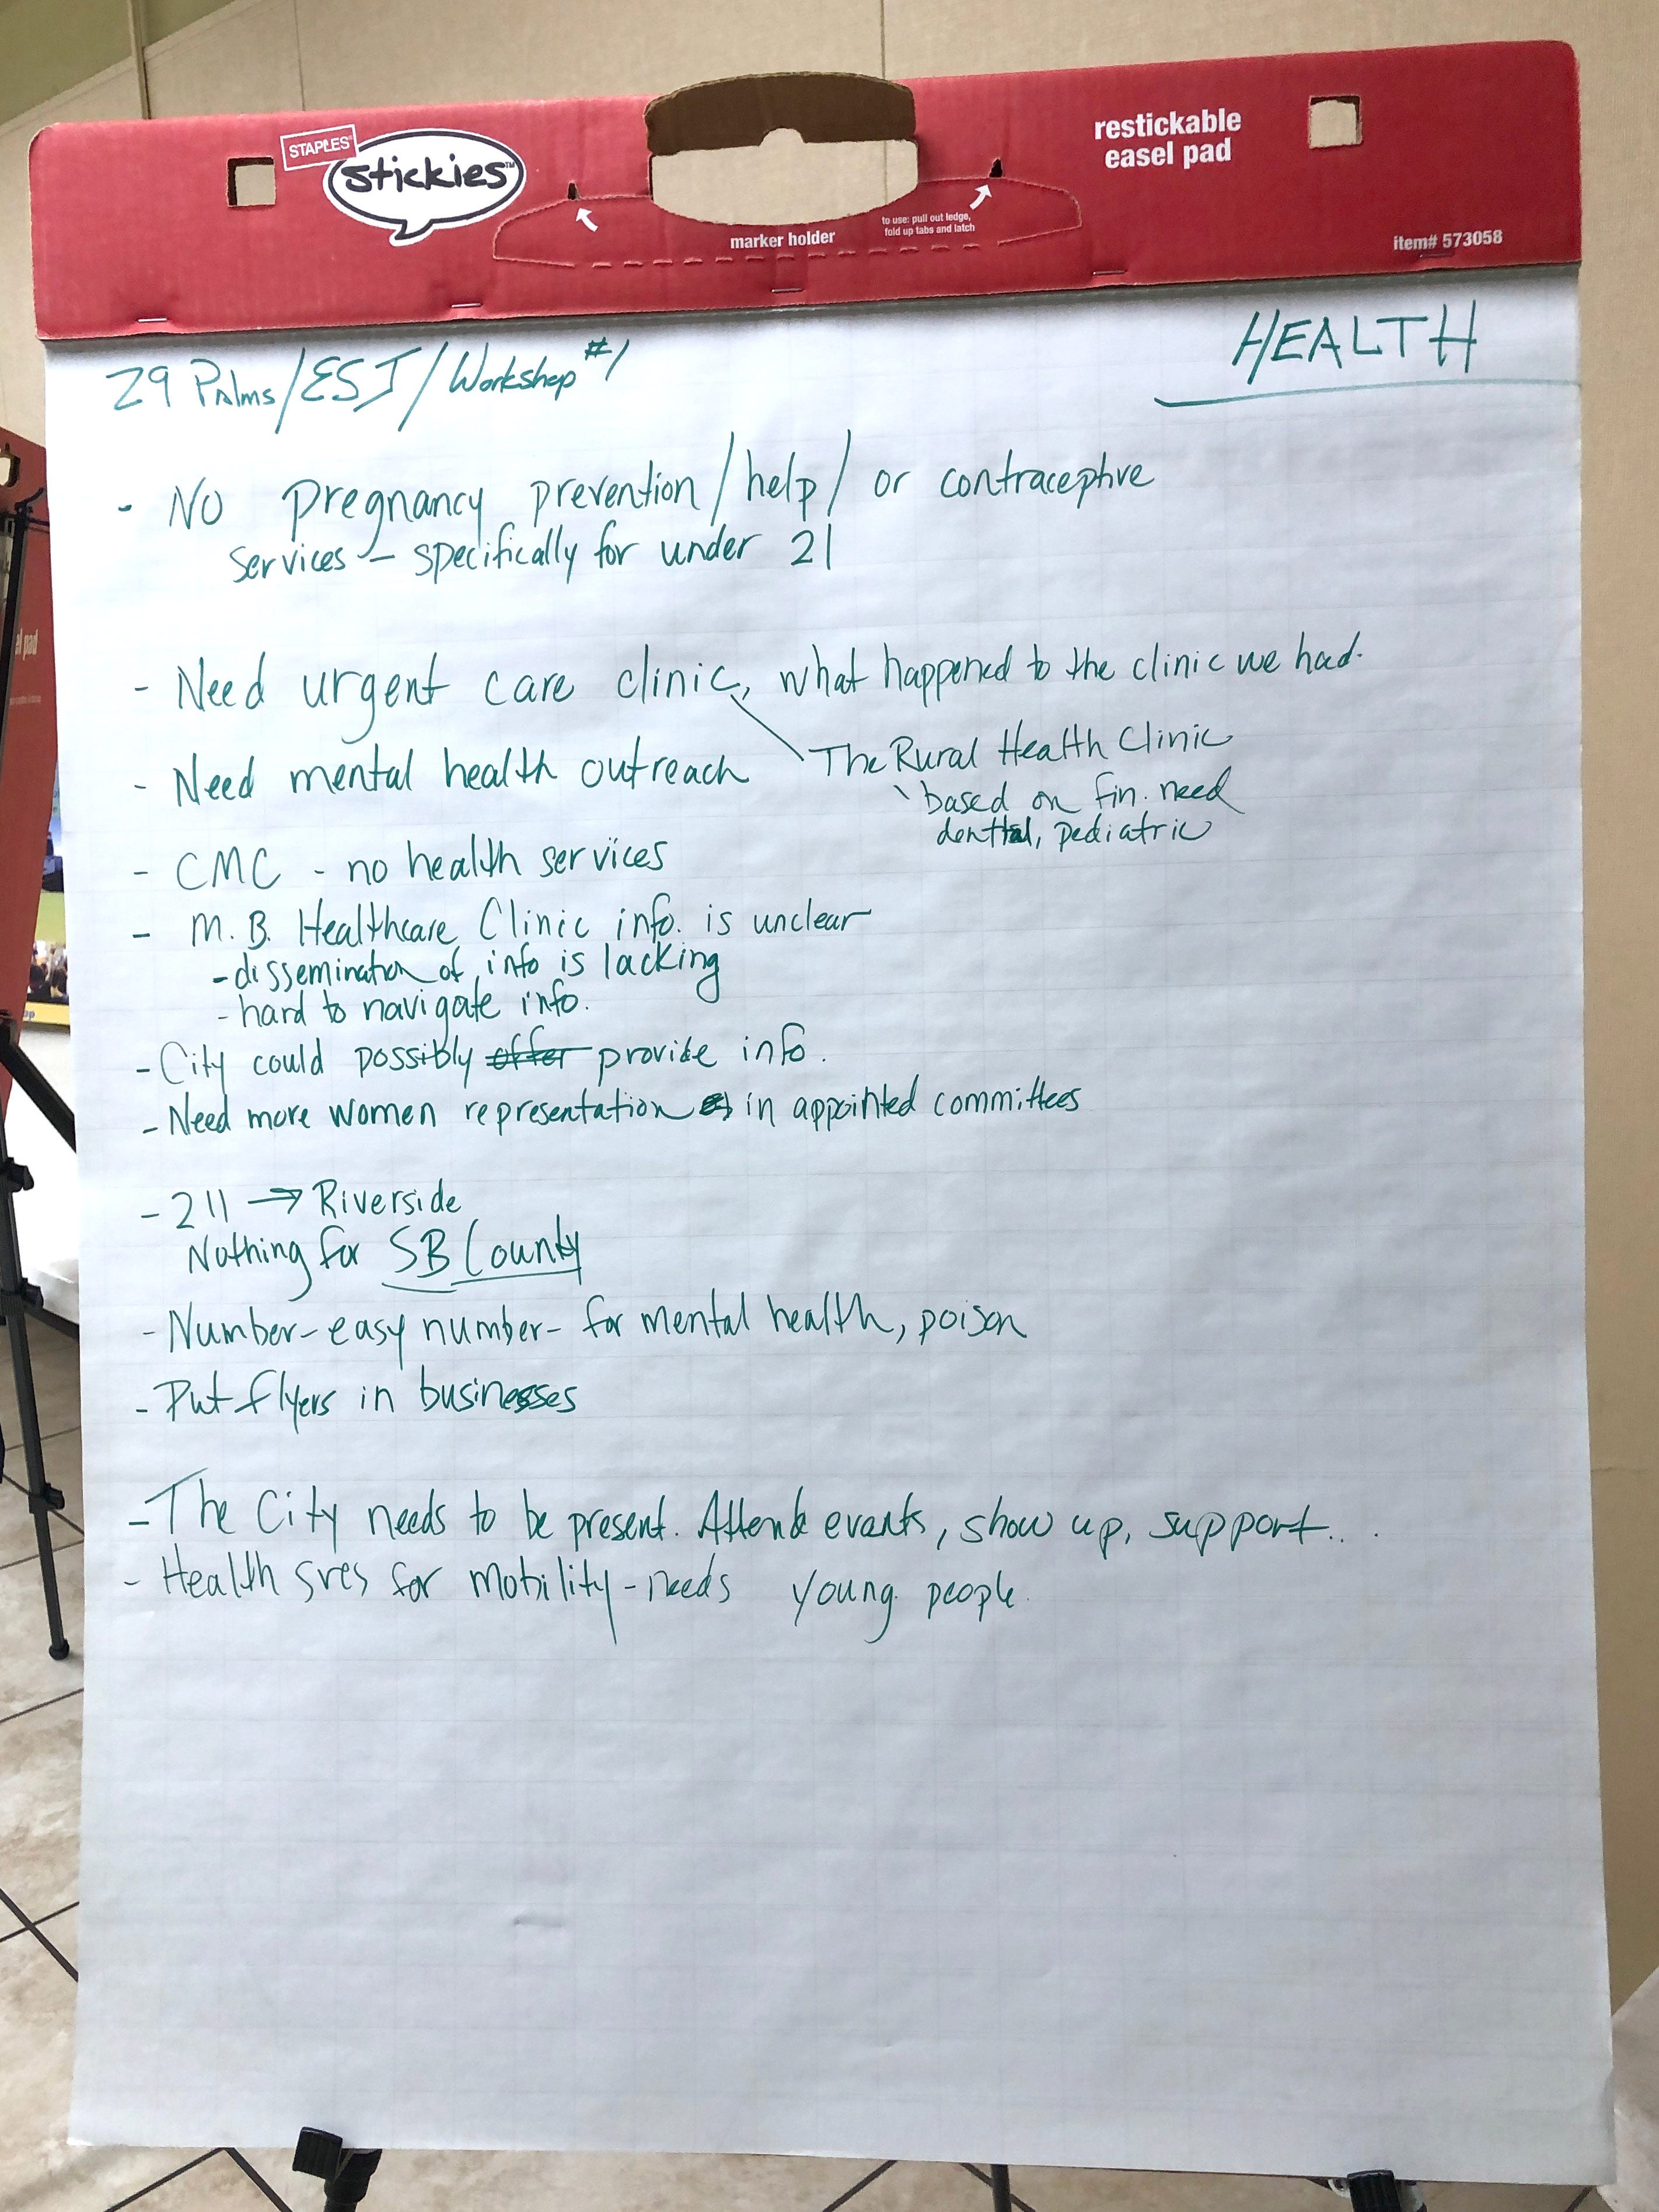 STAPLES
stickies™
restickable
easel pad
marker holder
to use: pull out ledge,
fold up tabs and latch
item# 573058
29 Palms/ESJ/Workshop #1
HEALTH
- No pregnancy prevention/help/ or contraceptive
services - specifically for under 21
- Need urgent care clinic, what happened to the clinic we had.
The Rural Health Clinic
- Need mental health outreach
based on fin. need
dental, pediatric
- CMC - no health services
- M.B. Healthcare Clinic info. is unclear
- dissemination of info is lacking
- hard to navigate info.
- City could possibly offer provide info.
- Need more women representation in appointed committees
- 211 → Riverside
Nothing for SB County
- Number - easy number - for mental health, poison
- Put flyers in businesses
- The City needs to be present. Attend events, show up, support...
- Health srvs for mobility - needs young people.
al pad